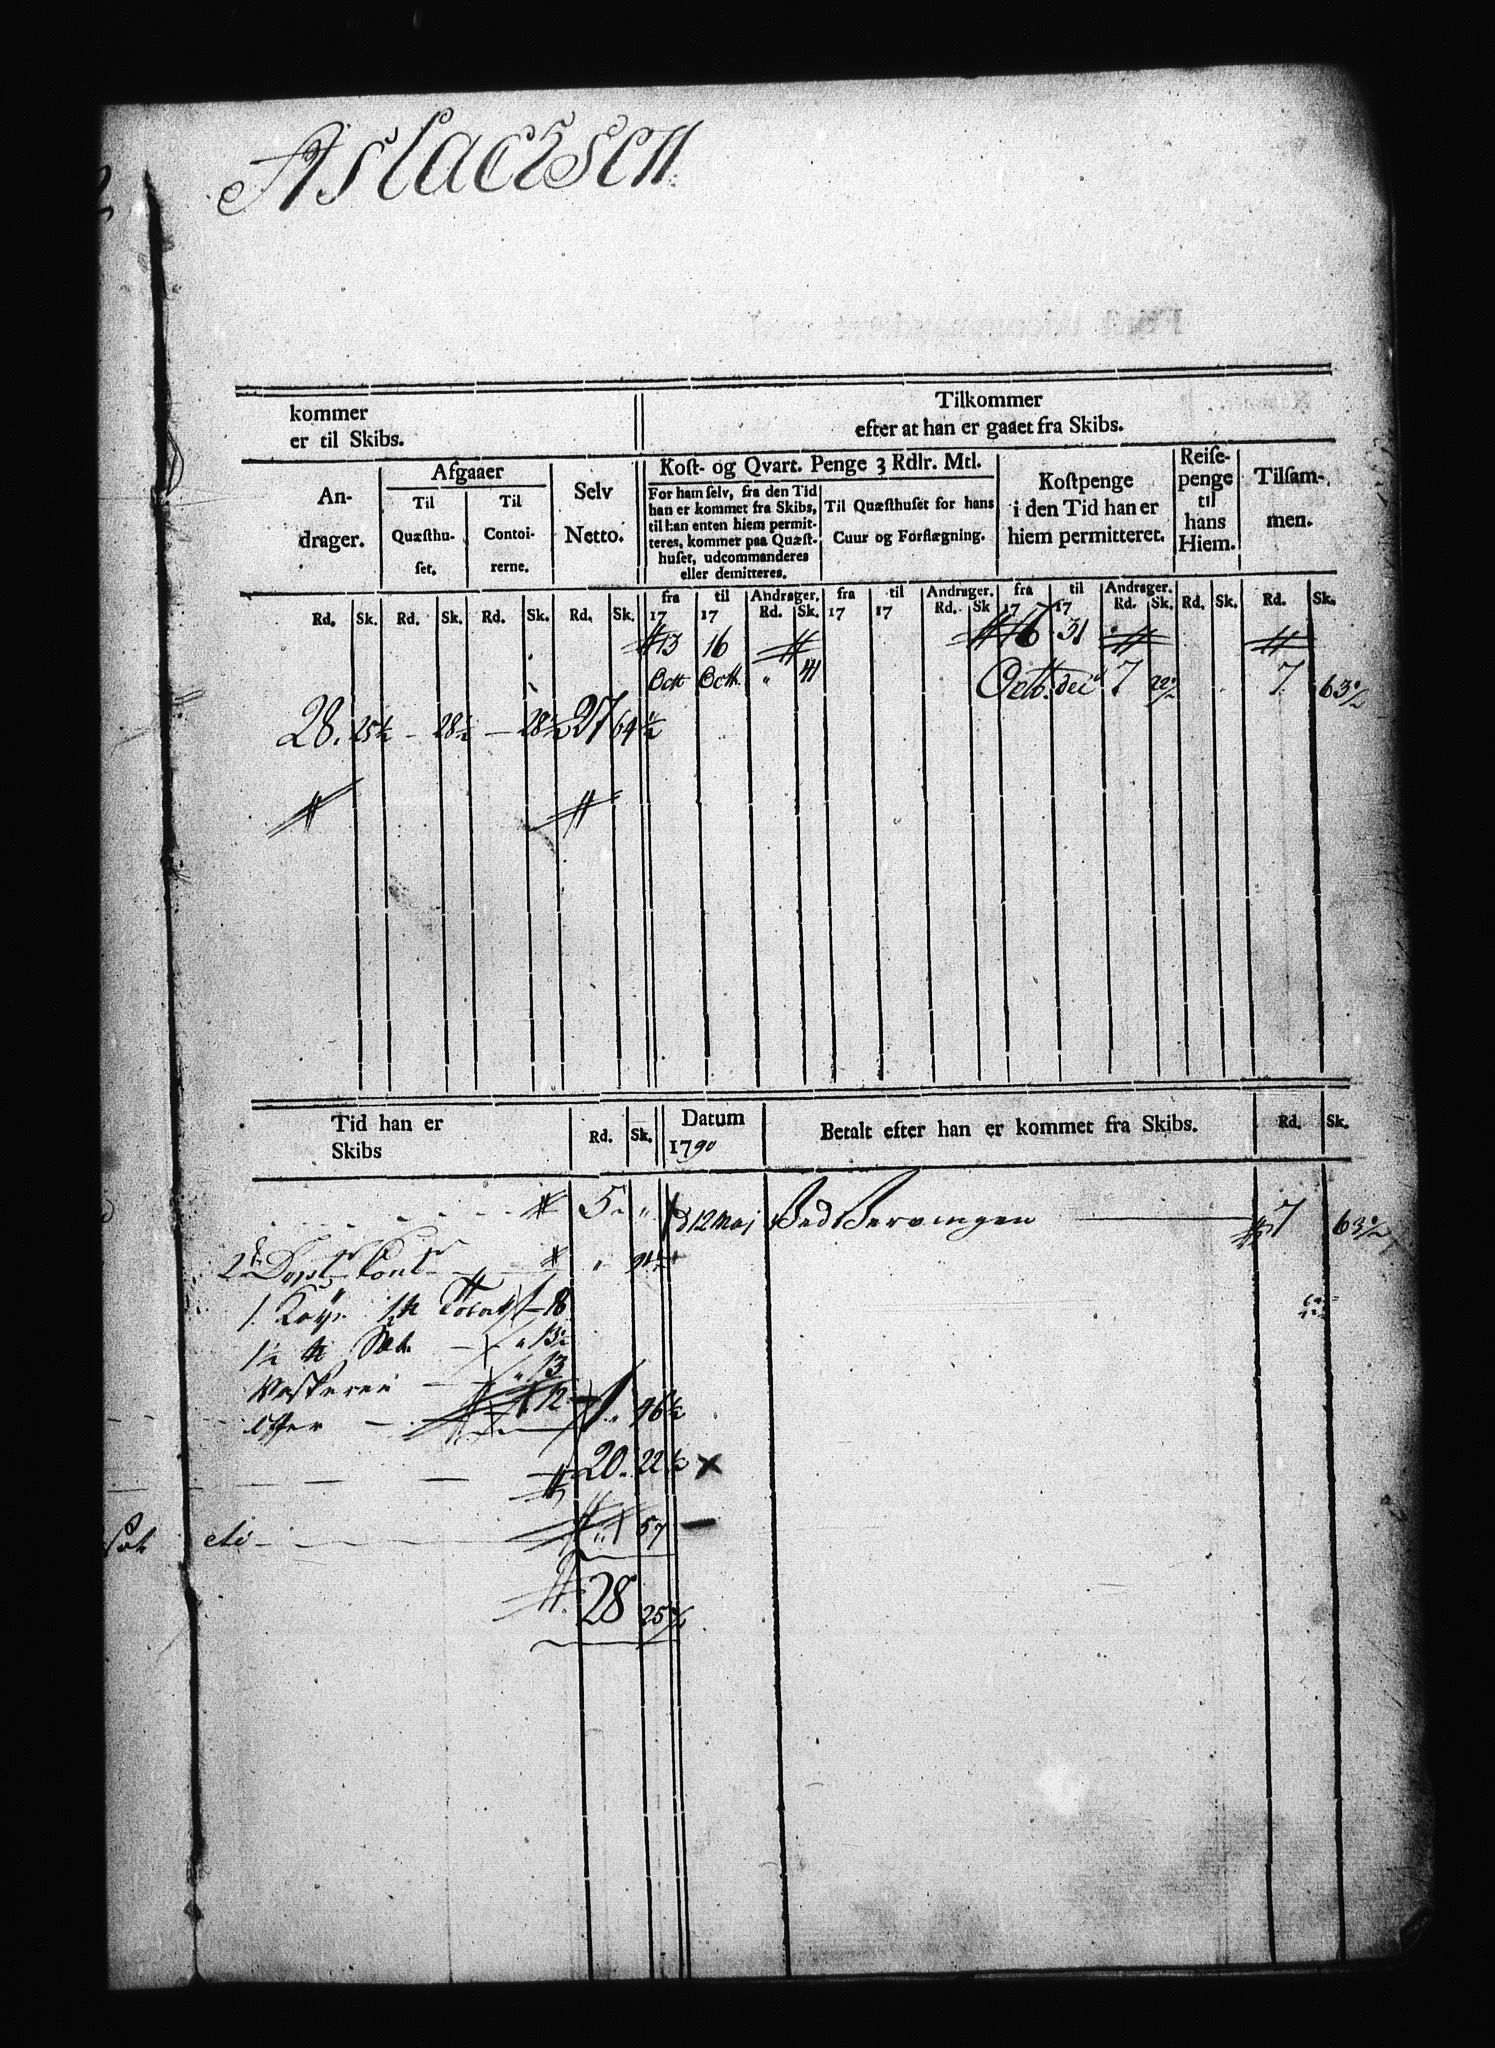 Aslacksen
kommer
er til Skibs.
Tilkommer
efter at han er gaaet fra Skibs.
An-
drager.
Afgaaer
Til
Quæsthu-
set.
Til
Contoi-
rerne.
Selv
Netto.
Kost- og Qvart. Penge 3 Rdlr. Mtl.
For ham selv, fra den Tid
han er kommet fra Skibs,
til han enten hiem permit-
teres, kommer paa Quæst-
huset, udcommanderes
eller demitteres.
Til Quæsthuset for hans
Cuur og Forflægning.
Kostpenge
i den Tid han er
hiem permitteret.
Reise-
penge
til
hans
Hiem.
Tilsam-
men.
fra til Andrager. fra til Andrager. fra til Andrager.
Rd. Sk. Rd. Sk. Rd. Sk. Rd. Sk. 17 17 Rd. Sk. 17 17 Rd. Sk 17 17 Rd. Sk. Rd. Sk. Rd. Sk.
13 16 16 31
Octt Octt. " 41 Octb. dec 7 22½ 7 63½
28. 25½ - 28½ - 28½ 27 64½
Tid han er
Skibs
Rd. Sk.
Datum
1790
Betalt efter han er kommet fra Skibs.
Rd. Sk.
5 - "
d 12 Maj Ved Bervingen 7 63½
1 Køye 18
1½ 13½
13
12 1 " 46½
20. 22½ ×
" 57 -
28 25½